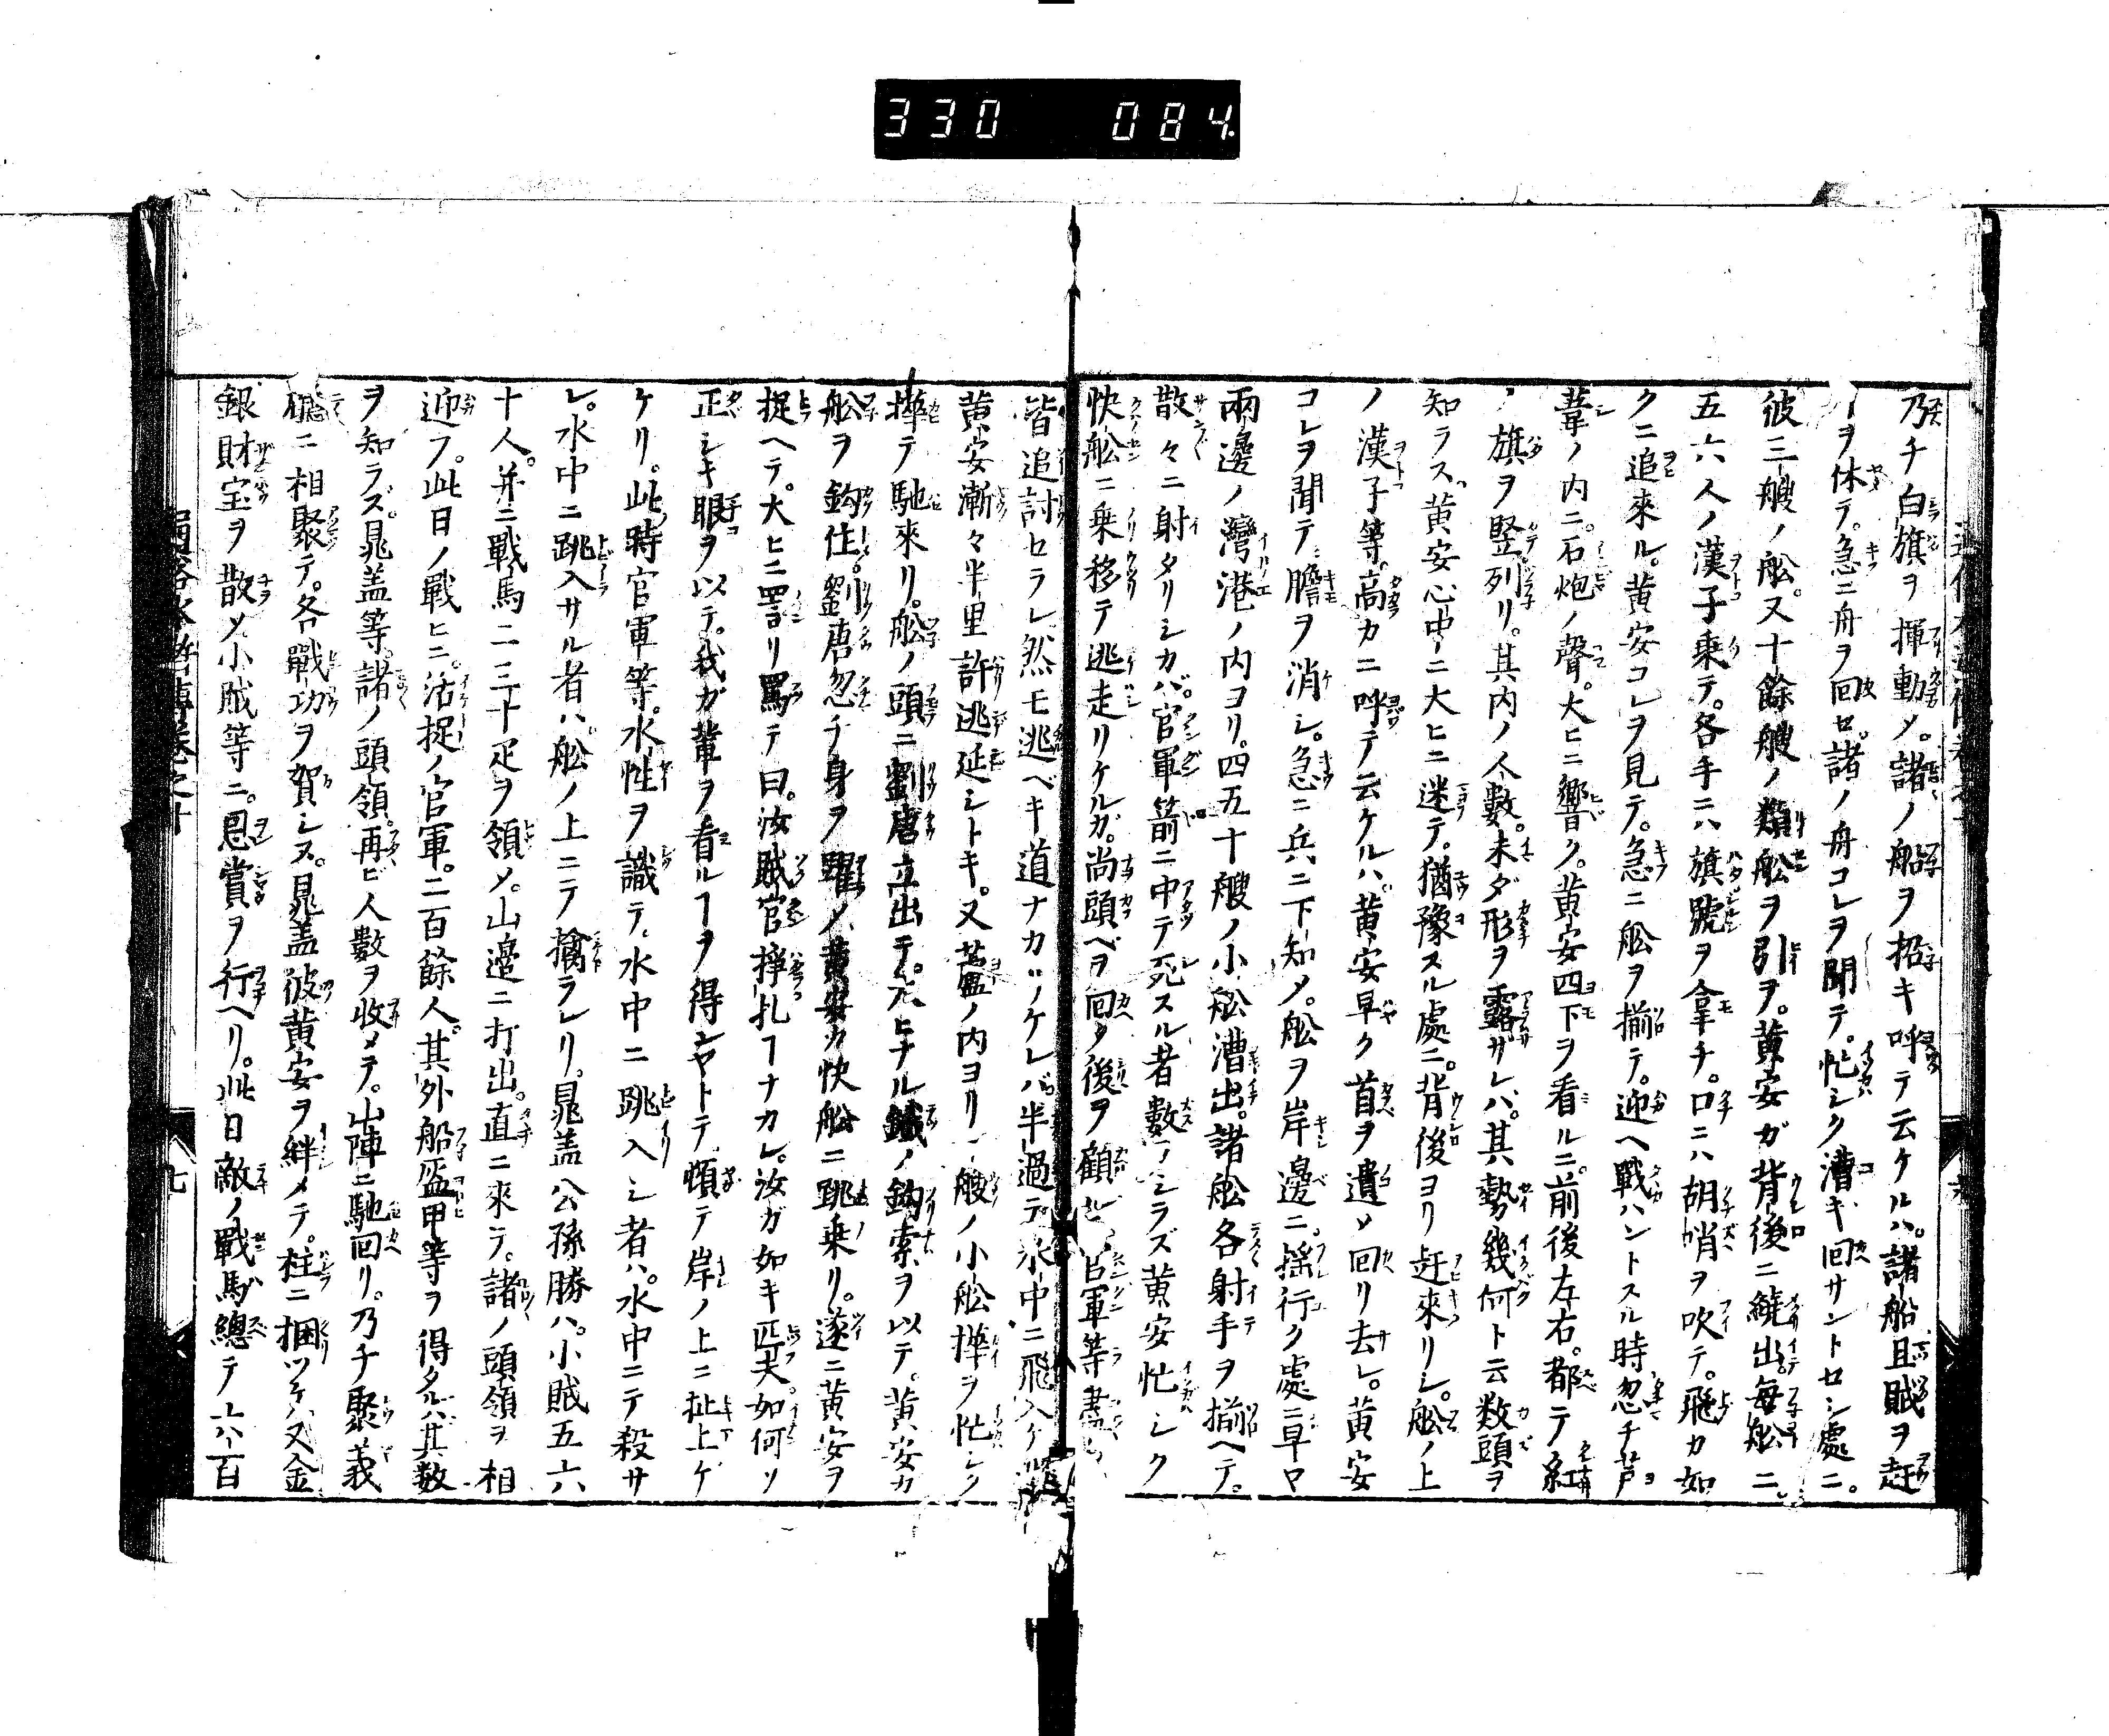 330 084
乃チ白旗ヲ揮動メ。諸ノ船ヲ招キ呼テ云ケルハ。諸船且賊ヲ赶
ヿヲ休テ。急ニ舟ヲ回セ。諸ノ舟コレヲ聞テ。忙シク漕キ回サントセシ處ニ。
彼三艘ノ舩。又十餘艘ノ類舩ヲ引ヲ。黄安ガ背後ニ繞出。毎舩ニ。
五六人ノ漢子乗テ。各手ニハ旗號ヲ拿チ。口ニハ胡哨ヲ吹テ。飛カ如
クニ追來ル。黄安コレヲ見テ。急ニ舩ヲ揃テ。迎ヘ戰ハントスル時忽チ芦
葦ノ内ニ。石炮ノ聲。大ヒニ響ク。黄安四下ヲ看ルニ。前後左右。都テ紅
ノ旗ヲ竪列リ。其内ノ人數。未ダ形ヲ露ザレバ。其勢幾何ト云数頭ヲ
知ラス。黄安心中ニ大ヒニ迷テ。猶豫スル處ニ。背後ヨリ赶來リシ。舩ノ上
ノ漢子等。高カニ呼テ云ケルハ。黄安早ク首ヲ遺メ回リ去レ。黄安
コレヲ聞テ膽ヲ消シ。急ニ兵ニ下知メ。舩ヲ岸邊ニ。揺行ク處ニ早ヤ
兩邊ノ灣港ノ内ヨリ。四五十艘ノ小舩漕出。諸舩各射手ヲ揃ヘテ。
散々ニ射タリシカバ。官軍箭ニ中テ死スル者數ヲシラズ黄安忙シク
快舩ニ乗移テ逃走リケルガ。尚頭ベヲ回タ後ヲ顧レバ。官軍等盡ク
皆追討セラレ然モ逃ベキ道ナカリケレバ。半過テ水中ニ飛入ケル
黄安漸々半里許逃延シトキ。又葦ノ内ヨリ一艘ノ小舩擇ヲ忙シク
擇テ馳來リ。舩ノ頭ニ劉唐立出テ。大ヒナル鐵ノ鈎索ヲ以テ。黄安カ
舩ヲ鈎住。劉唐忽チ身ヲ躍メ黄安カ快舩ニ跳乗リ。遂ニ黄安ヲ
捉ヘテ。大ヒニ詈リ罵テ曰。汝賊官掙扎ヿナカレ。汝ガ如キ匹夫。如何ソ
正シキ眼ヲ以テ。我ガ輩ヲ看ルヿヲ得ンヤトテ頓テ岸ノ上ニ扯上ゲ
ケリ。此時官軍等。水性ヲ識テ。水中ニ跳入シ者ハ。水中ニテ殺サ
レ。水中ニ跳入サル者ハ。舩ノ上ニテ擒ラレリ。晁盖公孫勝ハ。小賊五六
十人。并ニ戰馬二三十疋ヲ領メ。山邊ニ打出。直ニ來テ。諸ノ頭領ヲ相
迎フ。此日ノ戰ヒニ。活捉ノ官軍。二百餘人。其外船盔甲等ヲ得タルハ其数
ヲ知ラズ。晁盖等。諸ノ頭領。再ビ人數ヲ收メテ。山陣ニ馳回リ。乃チ聚義
廳ニ相聚テ。各戰功ヲ賀シヌ。晁盖彼黄安ヲ絆メテ。柱ニ捆ツケ。又金
銀財宝ヲ散メ小賊等ニ。恩賞ヲ行ヘリ。此日敵ノ戰馬總テ六百
七